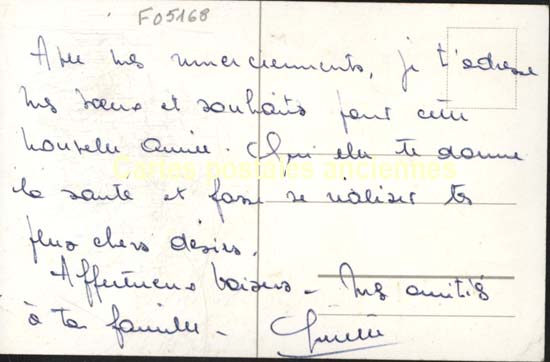 F05168
Avec mes remerciements, je t'adresse
mes vœux et souhaits pour cette
nouvelle année. Qu'elle te donne
la santé et fasse se réaliser tes
plus chers désirs.
Affectueux baisers - Mes amitiés
à ta famille -
Cartes postales anciennes